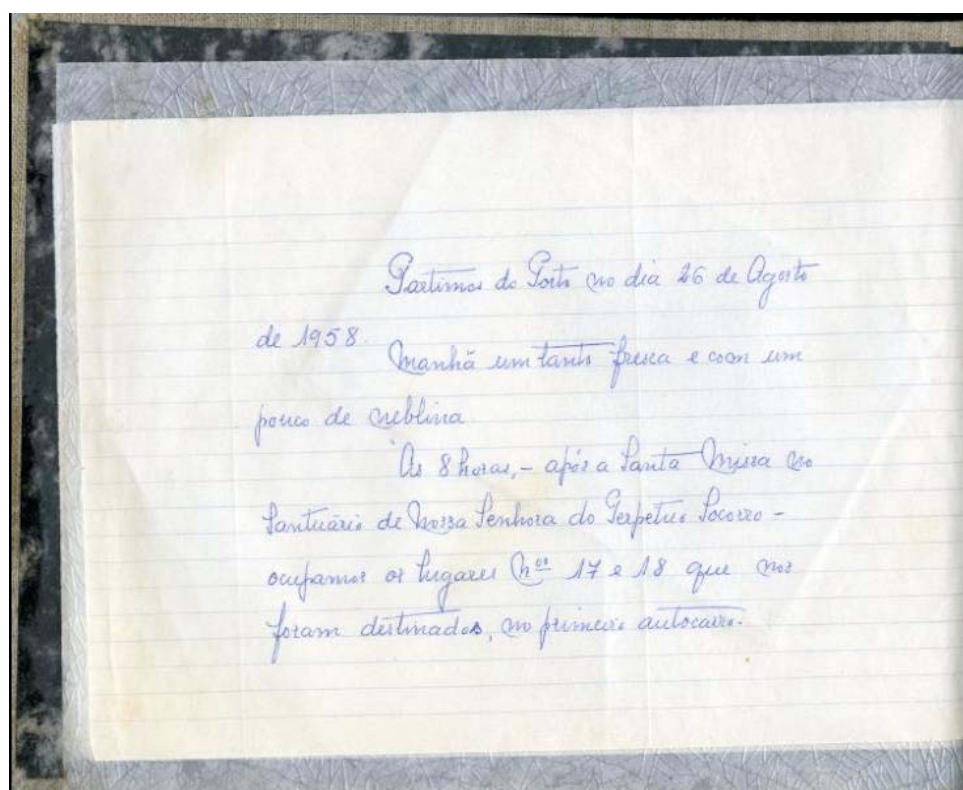 Partimos do Porto no dia 26 de Agosto
de 1958.
Manhã um tanto fresca e com um
pouco de neblina.
Às 8 horas, - após a Santa Missa no
Santuário de Nossa Senhora do Perpetuo Socorro -
ocupamos os lugares nºs 17 e 18 que nos
foram destinados, no primeiro autocarro.